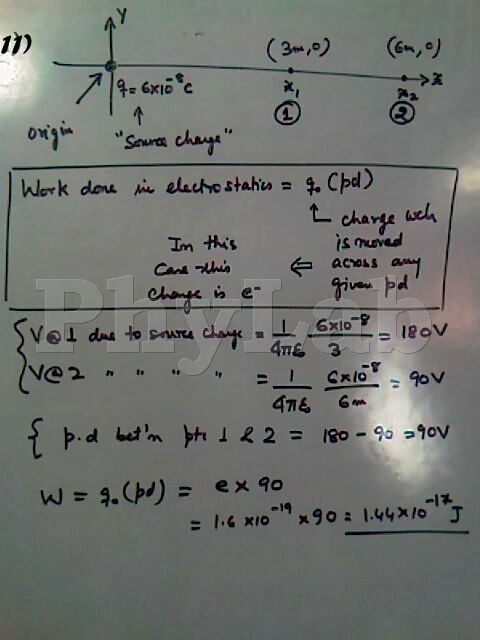 11)
Y
(3m,0) (6m,0)
q = 6×10⁻⁸ C x₁ x₂ x
① ②
origin "Source charge"
Work done in electrostatics = q₀ (pd)
charge wch
In this is moved
Case this ⇐ across any
charge is e⁻ given pd
PhyLab
V@1 due to source charge = 1/4πε₀ 6×10⁻⁸/3 = 180V
V@2 " " " " = 1/4πε₀ 6×10⁻⁸/6m = 90V
{ p.d bet'n pts 1 & 2 = 180 - 90 = 90V
W = q₀ (pd) = e × 90
= 1.6 ×10⁻¹⁹ × 90 = 1.44×10⁻¹⁷ J